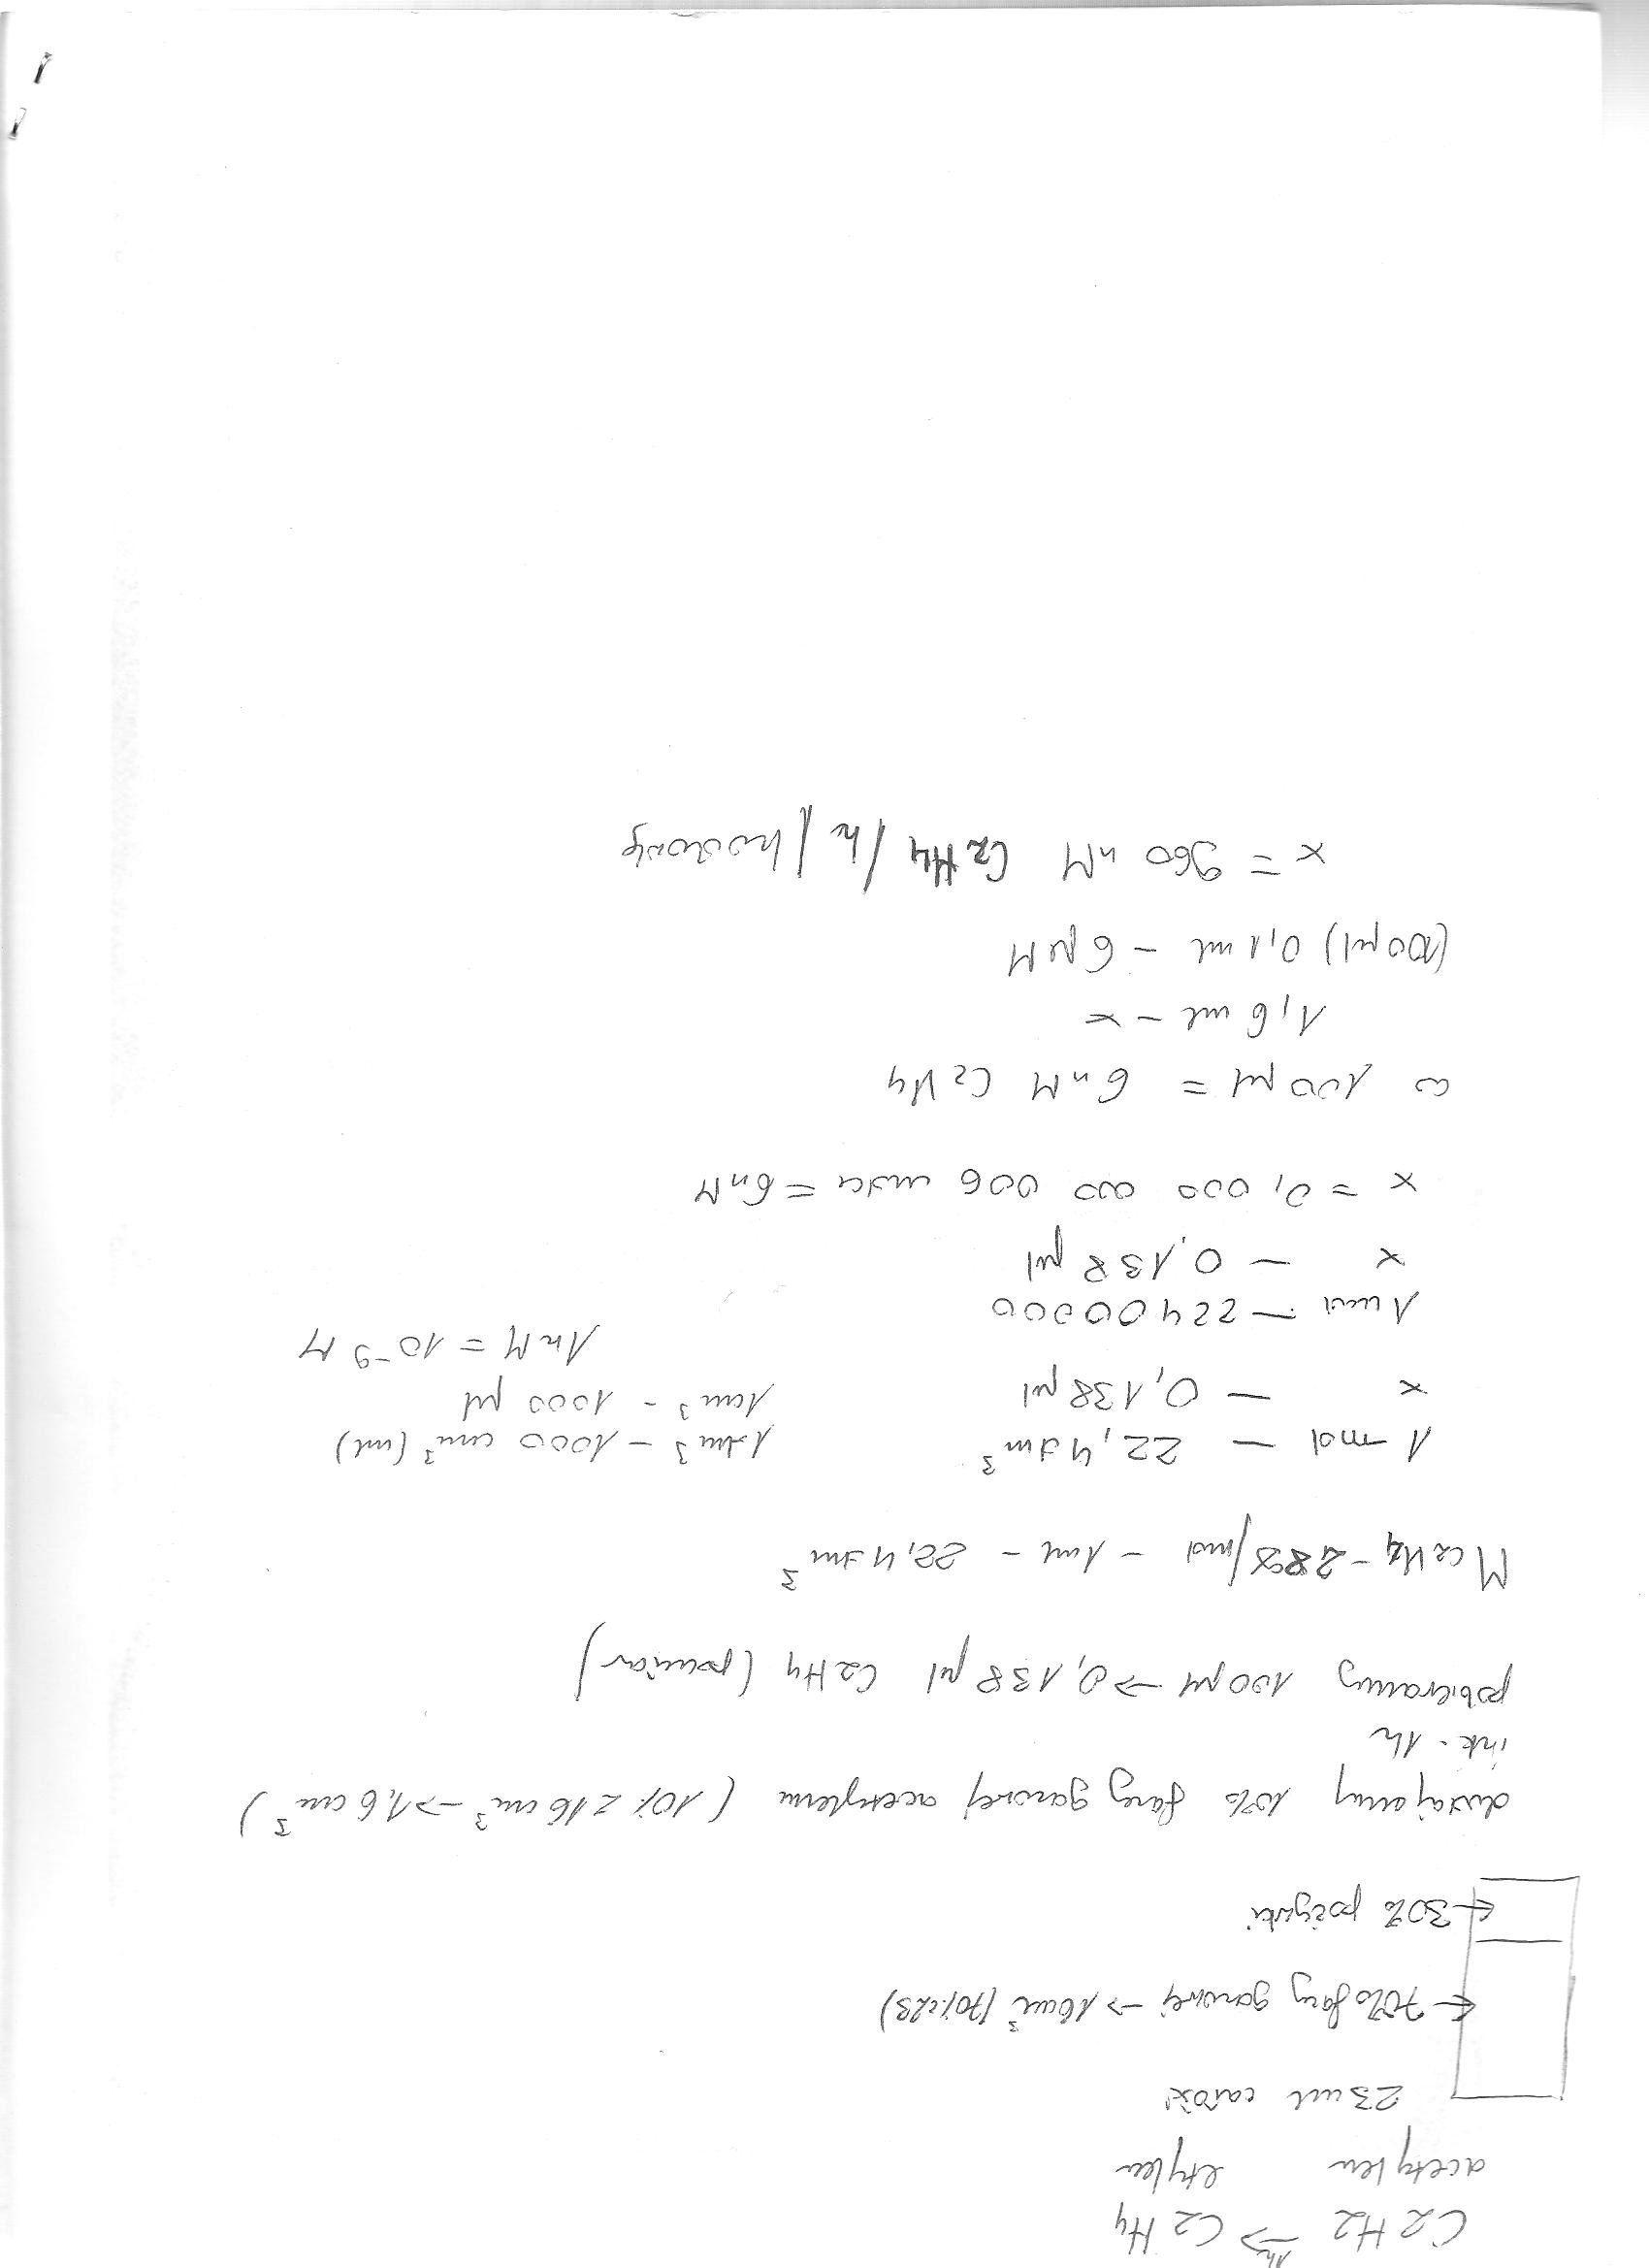 C2H2 1h→ C2H4
acetylen etylen
23 ml całość
← 70% fazy gazowej → 16 cm³ (70% z 23)
← 30% pożywki
dodajemy 10% fazy gazowej acetylenu (10% z 16 cm³ → 1,6 cm³)
ink. 1h
pobieramy 100 µl → 0,138 µl C2H4 (pomiar)
M C2H4 - 28g/mol - 1 mol - 22,4 dm³
1 mol - 22,4 dm³
x - 0,138 µl
1 dm³ - 1000 cm³ (ml)
1 cm³ - 1000 µl
1 nM = 10⁻⁹ M
1 mol - 22400000
x - 0,138 µl
x = 0,000 000 006 mola = 6 nM
w 100 µl = 6 nM C2H4
1,6 ml - x
(100 µl) 0,1 ml - 6 µM
x = 960 nM C2H4 /h /hodowlę